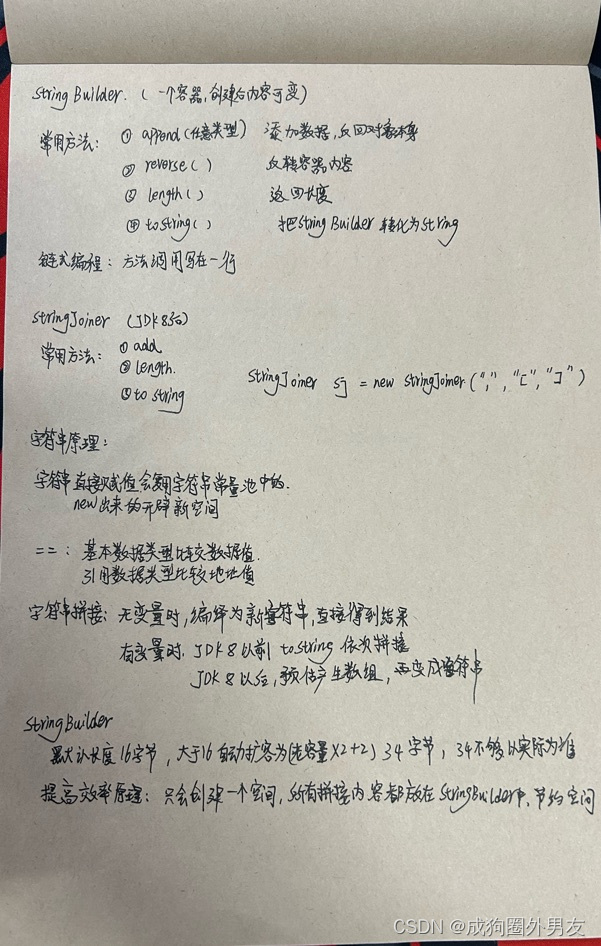 StringBuilder. (一个容器,创建后内容可变)
常用方法: ① append(任意类型) 添加数据,反回对象本身
② reverse( ) 反转容器内容
③ length( ) 返回长度
④ toString( ) 把StringBuilder 转化为String
链式编程: 方法调用写在一行
StringJoiner (JDK8后)
常用方法: ① add
② length.
③ to string
StringJoiner sj = new StringJoiner(",", "[", "]")
字符串原理:
字符串直接赋值会复用字符串常量池中的.
new出来的开辟新空间
==: 基本数据类型比较数据值.
引用数据类型比较地址值
字符串拼接: 无变量时,编绎为新字符串,直接得到结果
有变量时. JDK8以前 toString 依次拼接
JDK8以后,预估产生数组,再变成字符串
StringBuilder
默认长度16字节,大于16自动扩容为(老容量×2+2) 34字节, 34不够以实际为准
提高效率原理: 只会创建一个空间,所有拼接内容都放在StringBuilder中、节约空间
CSDN @成狗圈外男友